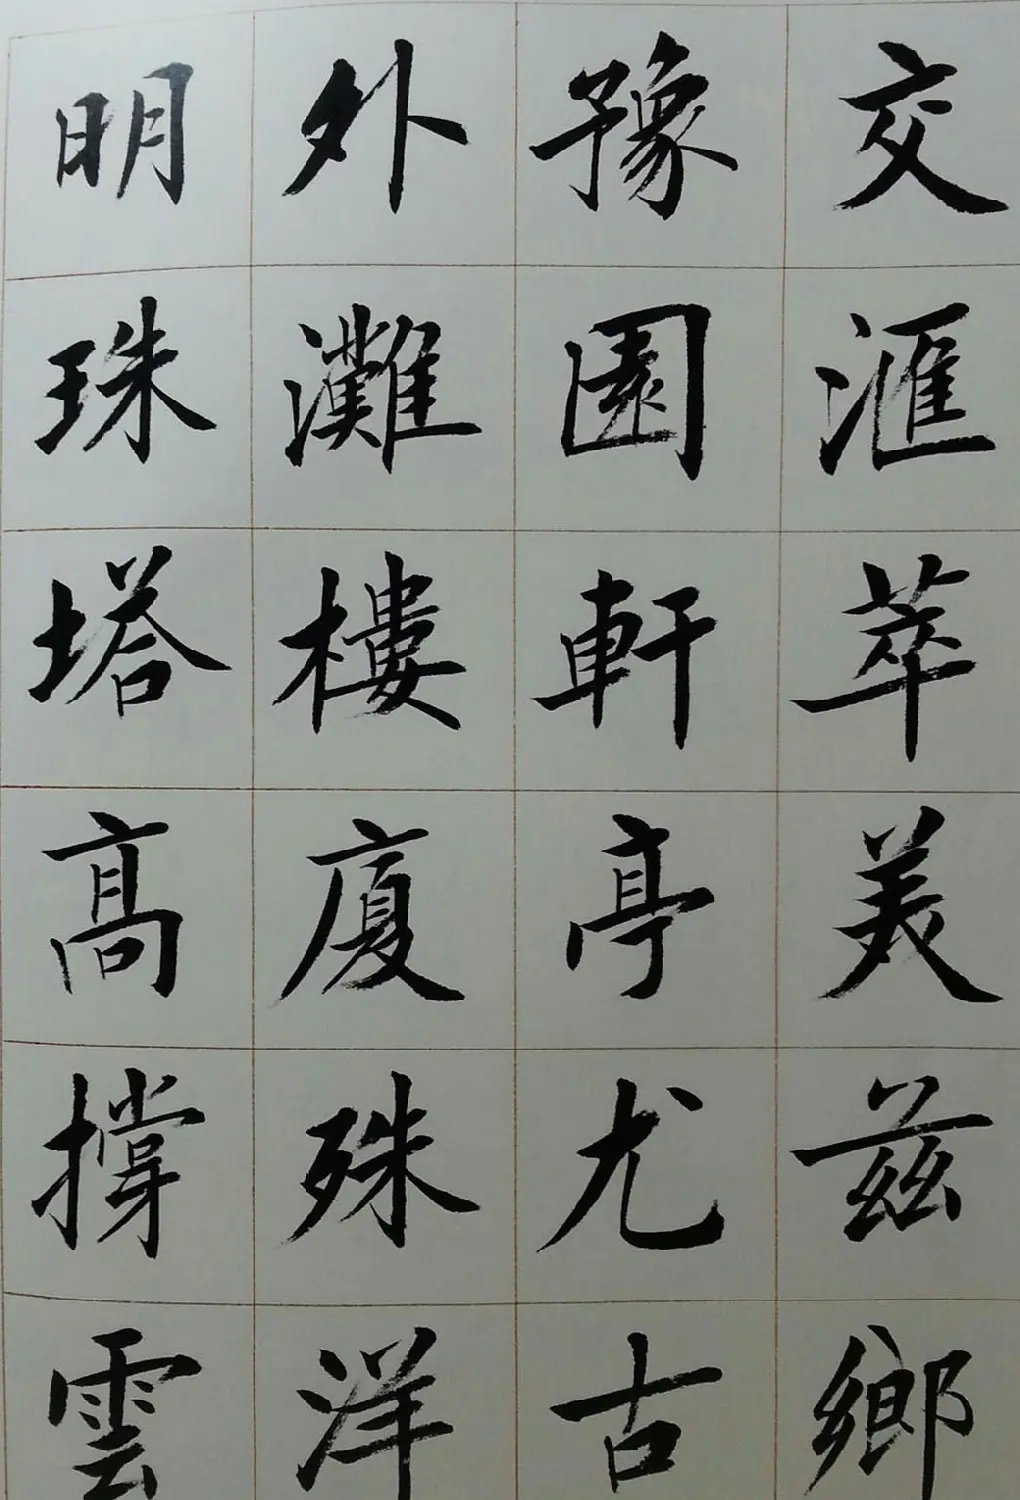 交滙萃美兹鄉
豫園軒亭尤古
外灘樓廈殊洋
明珠塔高撐雲